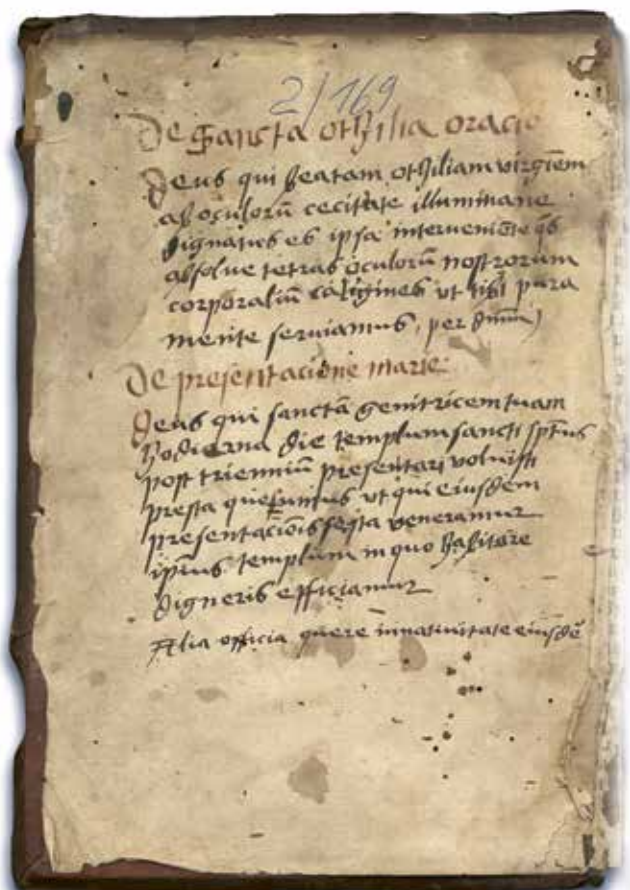 2/169
De sancta othilia oracio
Deus qui beatam othiliam virginem
ab oculorū cecitate illuminare
dignatus es ipsa interveniēte qs
absolve tetras oculorū nostrorum
corporaliū caligines ut tibi pura
mente serviamus, per dnm̄
De presentacione marie
Deus qui sanctā genitricem tuam
hodierna die templum sancti sptus
post trienniū presentari voluisti
presta quesumus ut qui eiusdem
presentaciōis festa veneramur
ipsius templum in quo habitare
digneris efficiamur
Alia officia quere in nativitate eiusdē